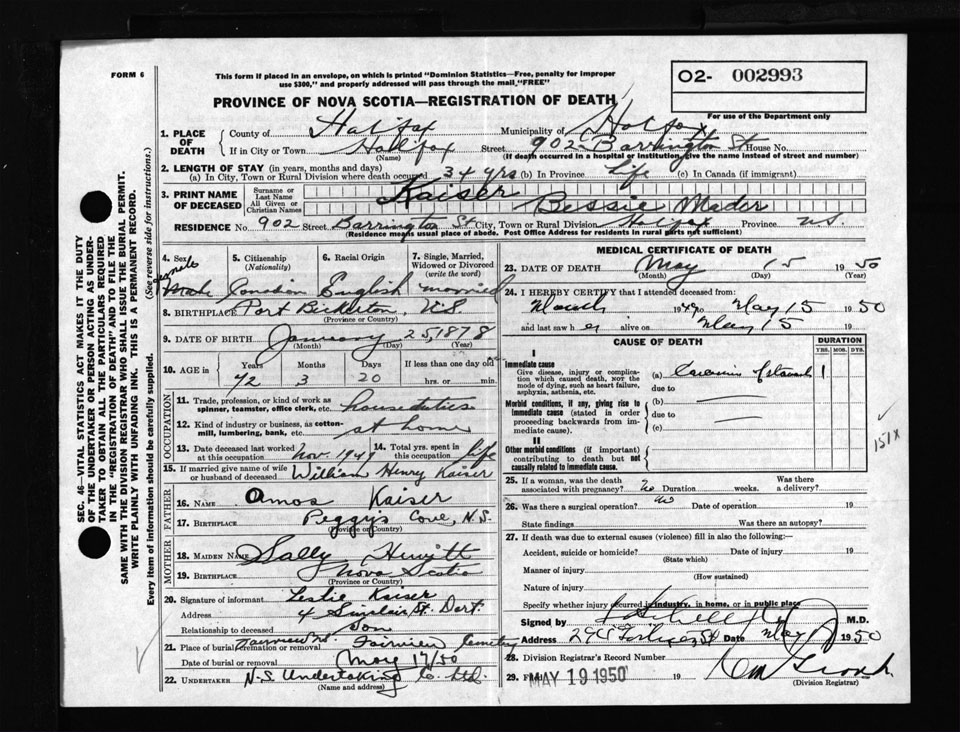 FORM 6
This form if placed in an envelope, on which is printed "Dominion Statistics—Free, penalty for improper
use $300," and properly addressed will pass through the mail "FREE"
O2- 002993
For use of the Department only
PROVINCE OF NOVA SCOTIA—REGISTRATION OF DEATH
1. PLACE OF DEATH
County of Halifax Municipality of Halifax
If in City or Town Halifax Street 902 Barrington St House No.
(Name) (If death occurred in a hospital or institution, give the name instead of street and number)
2. LENGTH OF STAY (in years, months and days)
(a) In City, Town or Rural Division where death occurred 34 yrs. (b) In Province Life (c) In Canada (if immigrant)
3. PRINT NAME OF DECEASED
Surname or Last Name Kaiser
All Given or Christian Names Bessie Mader
RESIDENCE No. 902 Street Barrington St City, Town or Rural Division Halifax Province N.S.
(Residence means usual place of abode. Post Office Address for residents in rural parts not sufficient)
4. Sex
5. Citizenship (Nationality)
6. Racial Origin
7. Single, Married, Widowed or Divorced (write the word)
Female
Male Canadian English married
8. BIRTHPLACE Port Bickerton, N.S.
(Province or Country)
9. DATE OF BIRTH January 25, 1878
(Month) (Day) (Year)
10. AGE in Years Months Days If less than one day old
72 3 20 hrs. or min.
OCCUPATION
11. Trade, profession, or kind of work as
spinner, teamster, office clerk, etc. house duties
12. Kind of industry or business, as cotton-
mill, lumbering, bank, etc. at home
13. Date deceased last worked at this occupation Nov. 1949
14. Total yrs. spent in this occupation life
15. If married give name of wife
or husband of deceased William Henry Kaiser
FATHER
16. NAME Amos Kaiser
17. BIRTHPLACE Peggys Cove, N.S.
(Province or Country)
MOTHER
18. MAIDEN NAME Sally Hewitt
19. BIRTHPLACE Nova Scotia
(Province or Country)
20. Signature of informant Leslie Kaiser
Address 4 Sinclair St. Dart.
Relationship to deceased Son
21. Place of burial, cremation or removal Fairview Cemetery
Date of burial or removal May 17/50
22. UNDERTAKER N.S. Undertaking Co. Ltd.
(Name and address)
MEDICAL CERTIFICATE OF DEATH
23. DATE OF DEATH May 15 1950
(Month) (Day) (Year)
24. I HEREBY CERTIFY that I attended deceased from:
March 1949 May 15 1950
and last saw her alive on May 15 19
CAUSE OF DEATH
DURATION
YRS. MOS. DYS.
I
Immediate cause
Give disease, injury or complica-
tion which caused death, NOT the
mode of dying, such as heart failure,
asphyxia, asthenia, etc.
(a) Carcinoma 1
due to
Morbid conditions, if any, giving rise to
immediate cause (stated in order
proceeding backwards from im-
mediate cause).
(b)
due to
(c)
II
Other morbid conditions (if important)
contributing to death but not
causally related to immediate cause.
151X
25. If a woman, was the death
associated with pregnancy? No Duration weeks. Was there a delivery?
26. Was there a surgical operation? No Date of operation 19
State findings Was there an autopsy?
27. If death was due to external causes (violence) fill in also the following:—
Accident, suicide or homicide? Date of injury 19
(State which)
Manner of injury
(How sustained)
Nature of injury
Specify whether injury occurred in industry, in home, or in public place
Signed by M.D.
Address Date May 1950
28. Division Registrar's Record Number
29. Filed MAY 19 1950 19
(Division Registrar)
SEC. 46—VITAL STATISTICS ACT MAKES IT THE DUTY
OF THE UNDERTAKER OR PERSON ACTING AS UNDER-
TAKER TO OBTAIN ALL THE PARTICULARS REQUIRED
IN THE "REGISTRATION OF DEATH" AND TO FILE THE
SAME WITH THE DIVISION REGISTRAR WHO SHALL ISSUE THE BURIAL PERMIT.
WRITE PLAINLY WITH UNFADING INK. THIS IS A PERMANENT RECORD.
Every item of information should be carefully supplied. (See reverse side for instructions.)